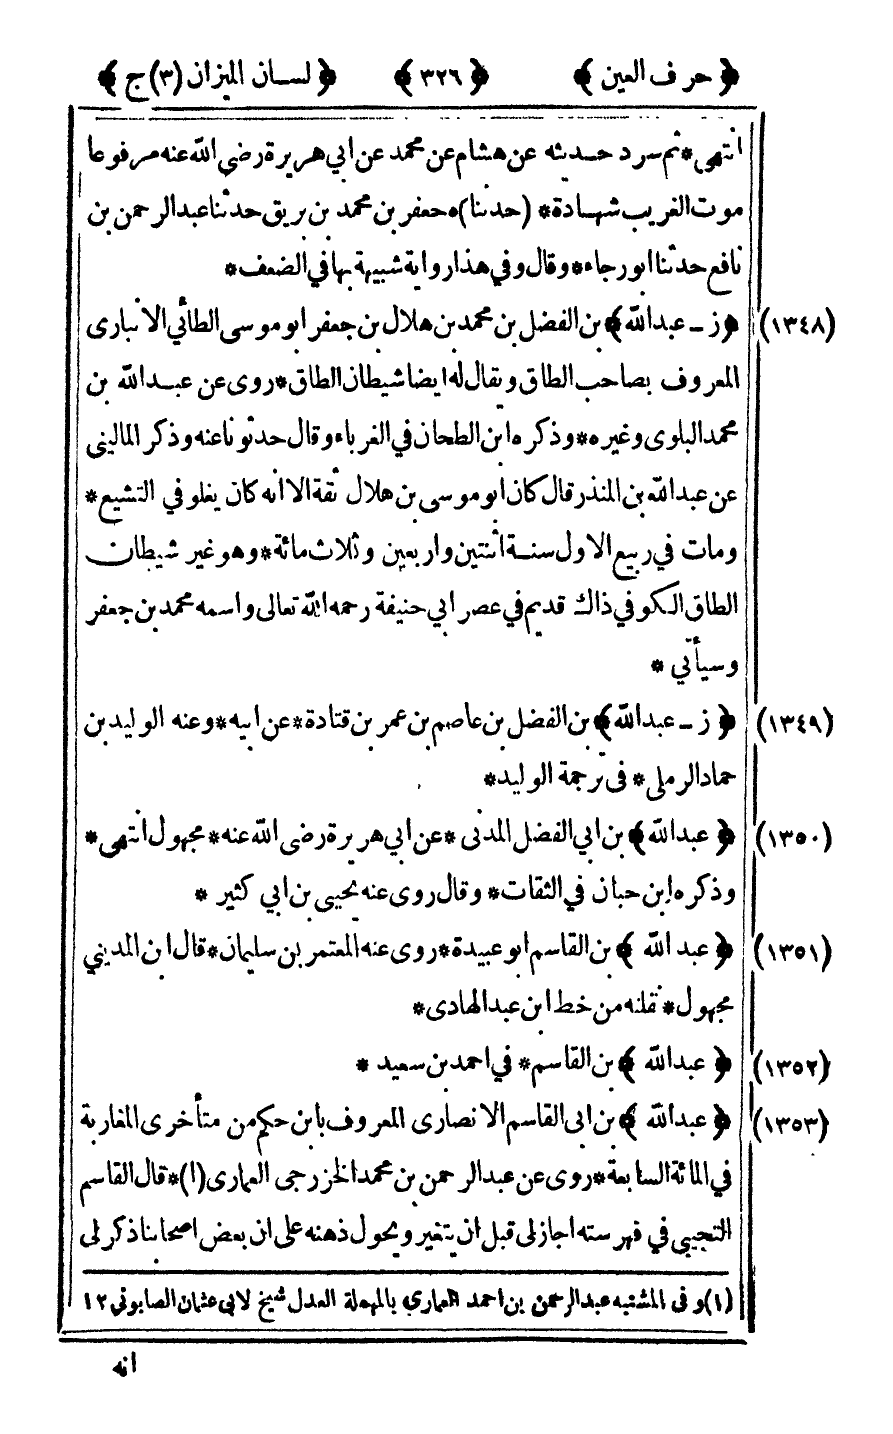 ﴿ حرف العين ﴾ ﴿ ٣٢٦ ﴾ ﴿ لسان الميزان (٣) ج ﴾
انتهى * ثم سرد حديثه عن هشام عن محمد عن ابي هريرة رضي الله عنه مرفوعا
موت الغريب شهادة * (حدثنا) ه جعفر بن محمد بن بريق حدثنا عبدالرحمن بن
نافع حدثنا ابو رجاء * وقال وفي هذا رواية شبيهة بها في الضعف *
(١٣٤٨) ﴿ ز ـ عبدالله ﴾ بن الفضل بن محمد بن هلال بن جعفر ابو موسى الطائي الانبارى
المعروف بصاحب الطاق ويقال له ايضا شيطان الطاق * روى عن عبدالله بن
محمد البلوى وغيره * وذكره ابن الطحان في الغرباء وقال حدثونا عنه وذكر الماليني
عن عبدالله بن المنذر قال كان ابو موسى بن هلال ثقة الا انه كان يغلو في التشيع *
ومات في ربيع الاول سنة اثنتين واربعين وثلاث مائة * وهو غير شيطان
الطاق الكوفي ذاك قديم في عصر ابي حنيفة رحمه الله تعالى واسمه محمد بن جعفر
وسيأتي *
(١٣٤٩) ﴿ ز ـ عبدالله ﴾ بن الفضل بن عاصم بن عمر بن قتادة * عن ابيه * وعنه الوليد بن
حماد الرملى * فى ترجمة الوليد *
(١٣٥٠) ﴿ عبدالله ﴾ بن ابي الفضل المدنى * عن ابي هريرة رضى الله عنه * مجهول انتهى *
وذكره ابن حبان في الثقات * وقال روى عنه يحيى بن ابي كثير *
(١٣٥١) ﴿ عبد الله ﴾ بن القاسم ابو عبيدة * روى عنه المعتمر بن سليمان * قال ابن المديني
مجهول * نقلته من خط ابن عبدالهادى *
(١٣٥٢) ﴿ عبدالله ﴾ بن القاسم * في احمد بن سعيد *
(١٣٥٣) ﴿ عبدالله ﴾ بن ابى القاسم الانصارى المعروف بابن حكم من متأخرى المغاربة
في المائة السابعة * روى عن عبدالرحمن بن محمد الخزرجى العمارى (١) * قال القاسم
التجيبي في فهرسته اجاز لى قبل ان يتغير ويحول ذهنه على ان بعض اصحابنا ذكر لى
(١) و فى المشتبه عبدالرحمن بن احمد العماري بالمهملة العدل شيخ لابي عثمان الصابوني ١٢
انه